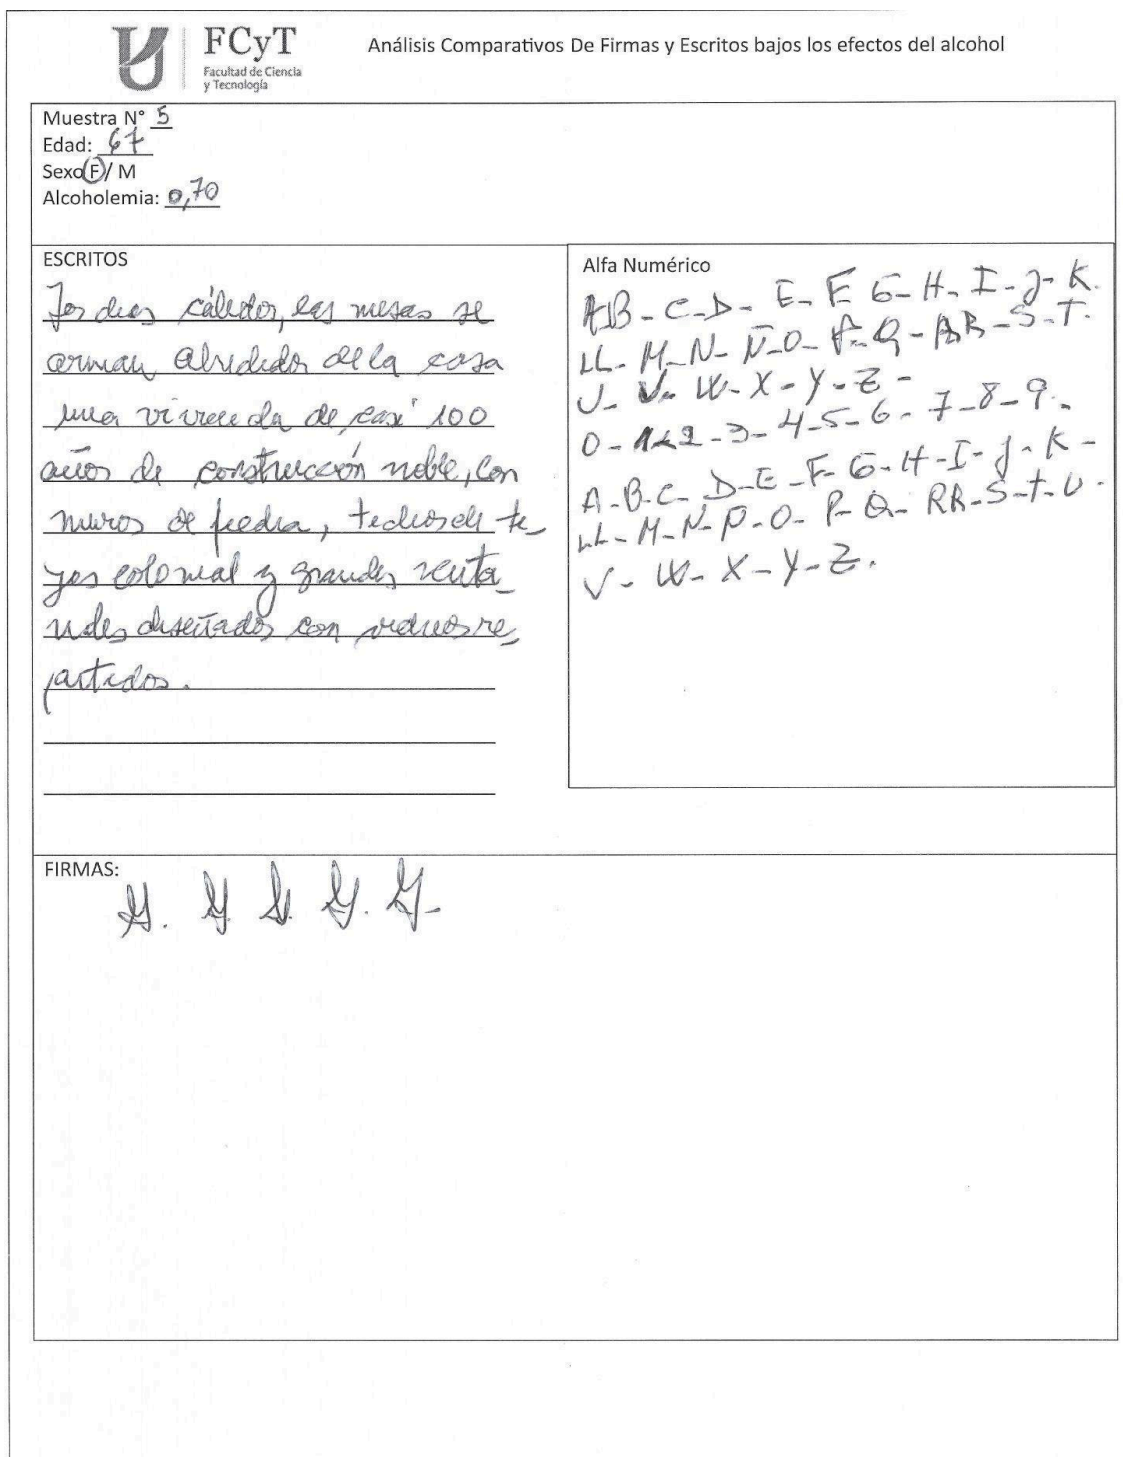 FCyT
Facultad de Ciencia
y Tecnología
Análisis Comparativos De Firmas y Escritos bajos los efectos del alcohol
Muestra N° 5
Edad: 67
Sexo F / M
Alcoholemia: 0,70
ESCRITOS
días cálidos, las mesas se
arman alrededor de la casa
una vivienda de casi 100
años de construcción noble, con
muros de piedra, techos de te
jas colonial y grandes venta_
nales diseñados con vidrios re_
partidos.
Alfa Numérico
A B - C - D - E - F G - H - I - J - K.
LL - M - N - Ñ - O - P - Q - RR - S - T.
U - V - W - X - Y - Z -
0 - 1 2 - 3 - 4 - 5 - 6 - 7 - 8 - 9.
A - B - C - D - E - F - G - H - I - J - K -
LL - M - N - O - P - Q - RR - S - T - U -
V - W - X - Y - Z.
FIRMAS: